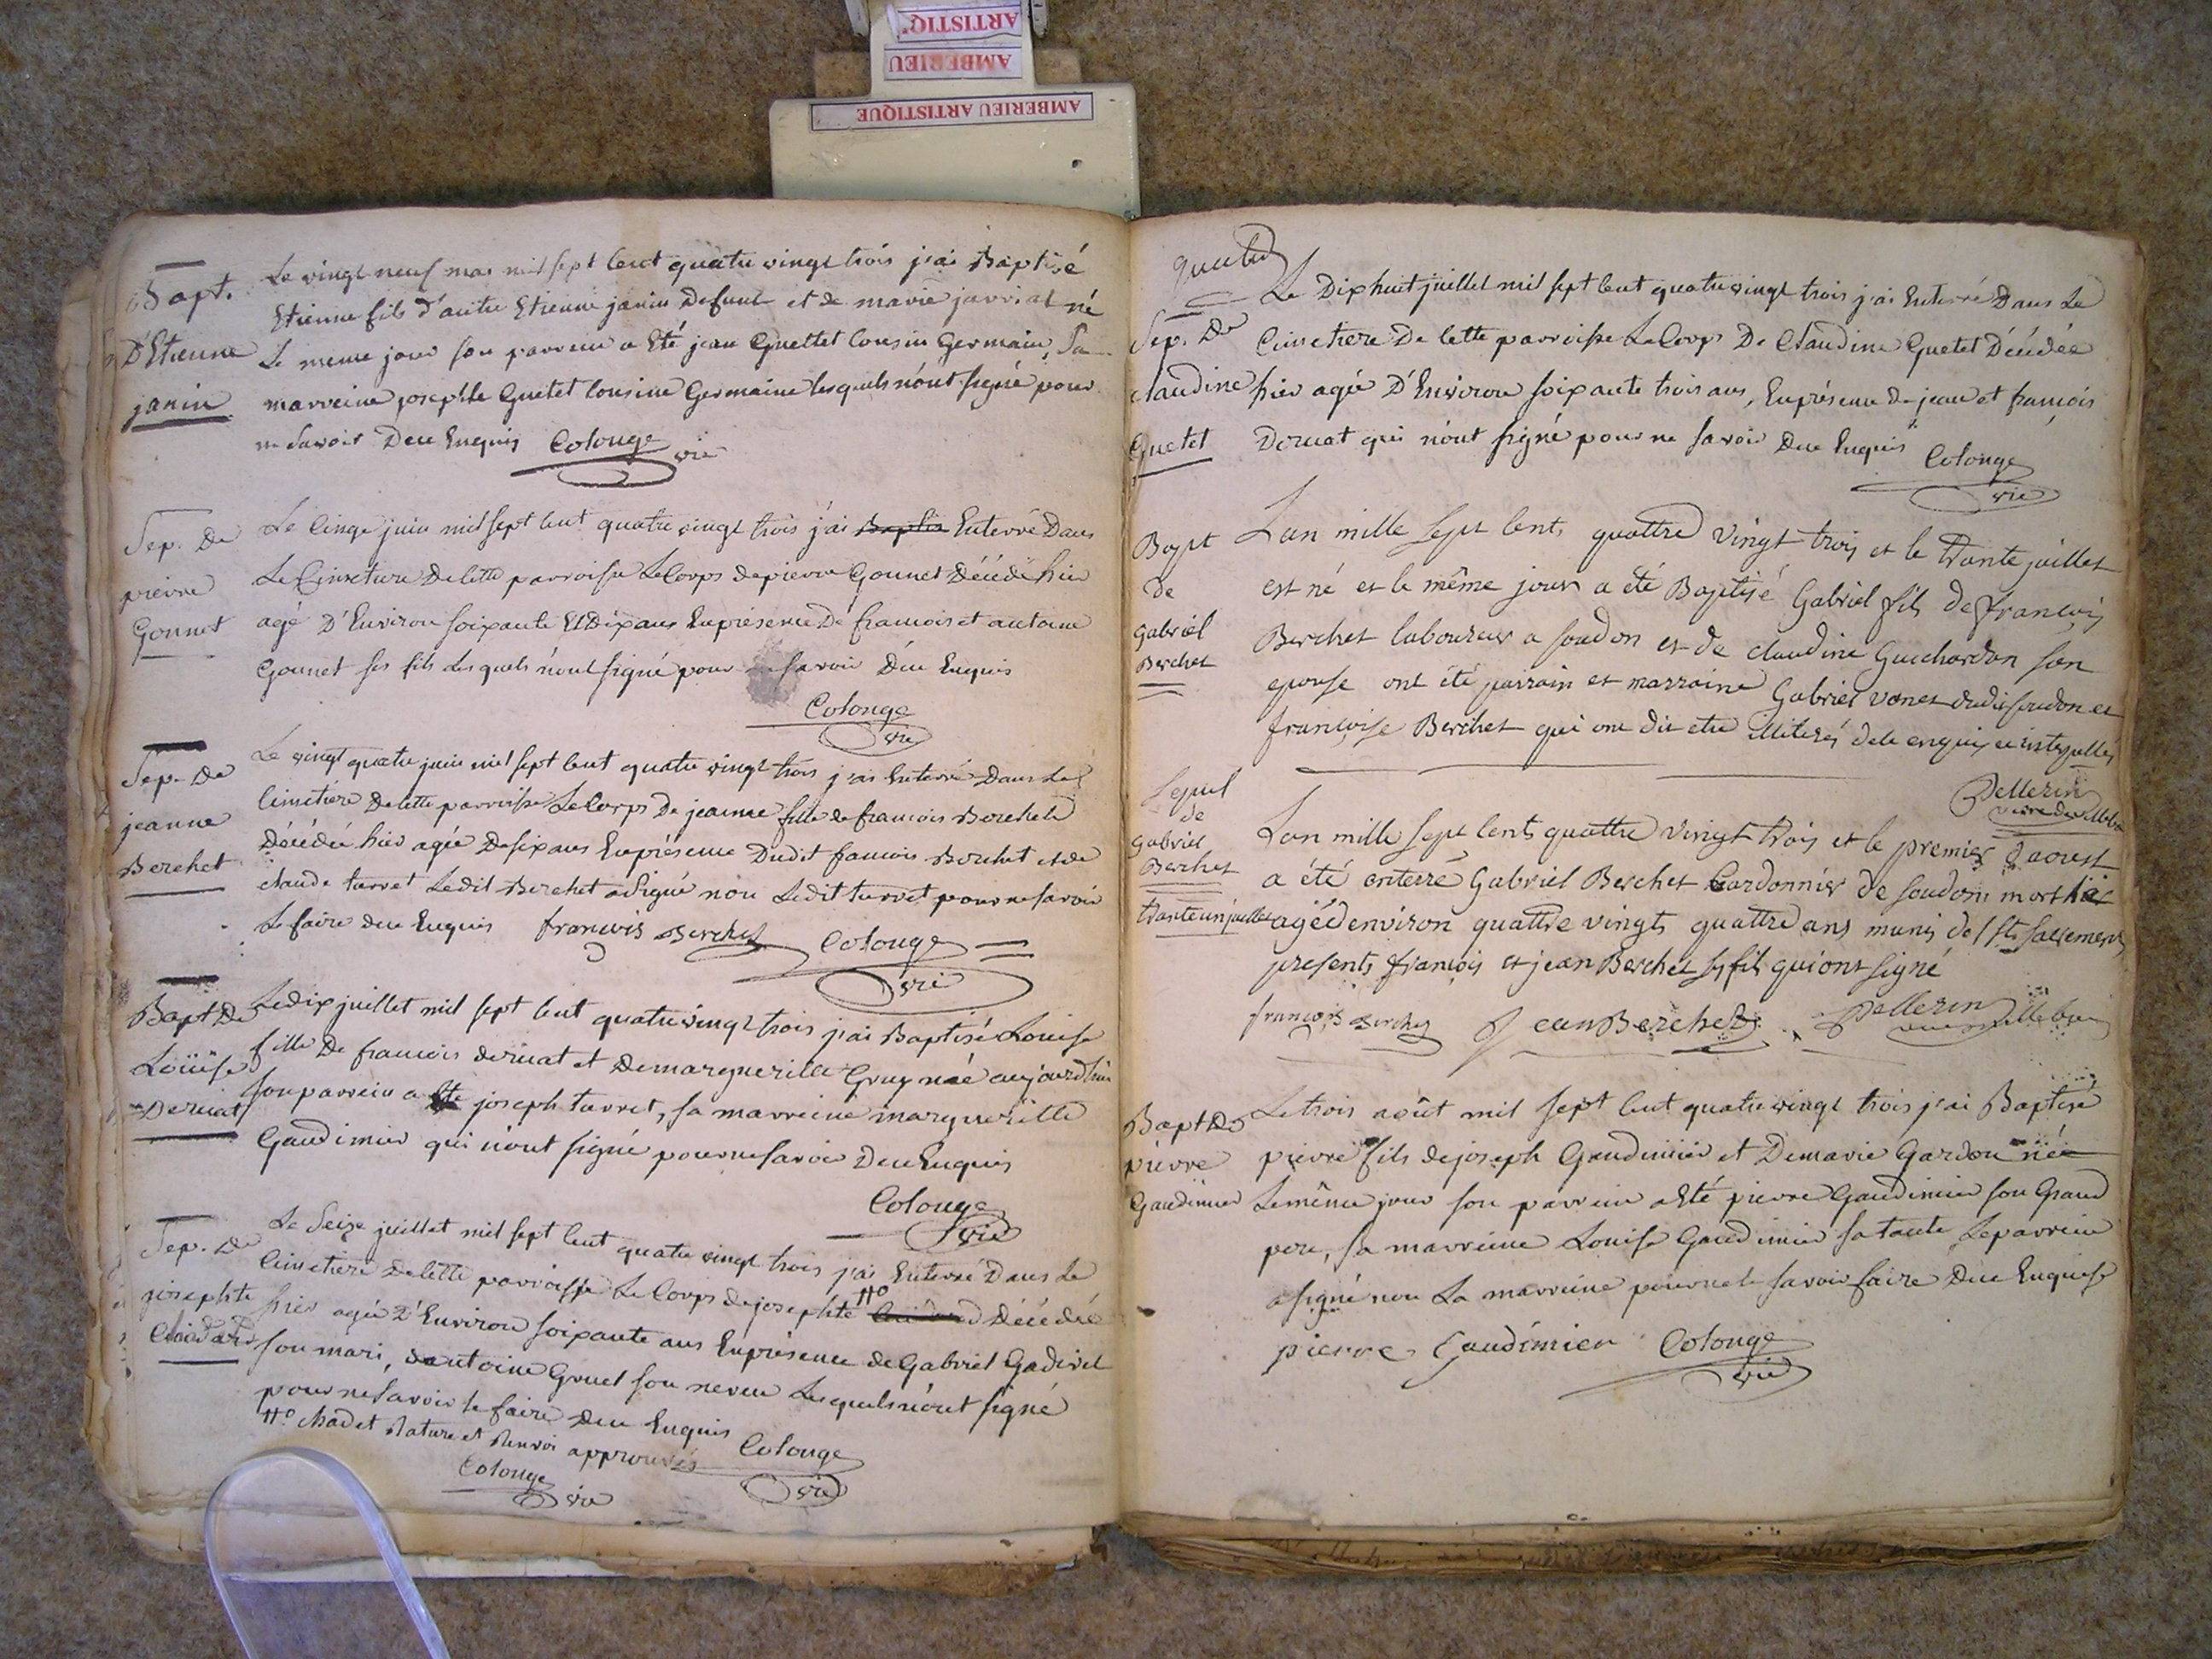 ARTISTIQ
AMBERIEU
AMBERIEU ARTISTIQUE
Bapt.
D'Etienne
janin
Le vingt neuf mai mil sept cent quatre vingt trois j'ai Baptisé
Etienne fils d'autre Etienne janin Defunt et de marie javriat né
Le meme jour son parrein a Eté jean Guettet Cousin Germain, Sa
marreine josephte Guetet Cousine Germaine lesquels n'ont signé pour
ne Savoir Deu Enquis Colonge
vic
Sep. De
pierre
Gonnet
Le Cinqe juin mil sept cent quatre vingt trois j'ai Baptis Enterré Dans
Le Cimetiere De cette parroisse Le Corps de pierre Gonnet Décédé hier
agé D'Environ soixante Et Dix ans En présence De francois et antoine
Gonnet ses fils Les quels n'ont signé pour ne savoir Deu Enquis
Colonge
vic
Sep. De
jeanne
Berchet
Le vingt quatre juin mil sept cent quatre vingt trois j'ai Enterré Dans Le
Cimetiere De cette parroisse Le Corps De jeanne fille de francois Berchet
Décédée hier agée De six ans En présence Dudit francois Berchet et de
claude turret Ledit Berchet a Signé non Ledit turret pour ne savoir
Le faire deu Enquis francois Berchet Colonge
vic
Bapt De
Loüise
Deruat
Le dix juillet mil sept cent quatre vingt trois j'ai Baptisé Louise
fille De francois deruat et De marguerite Gruy née aujourd'hui
son parrein a Eté joseph turret, sa marreine margueritte
Gaudimier qui n'ont signé pour ne savoir Deu Enquis
Colonge
vic
Sep. De
josephte
Le Seize juillet mil sept cent quatre vingt trois j'ai Enterré Dans Le
Cimetiere De cette parroisse Le Corps de josephte #° Décédée
hier agée D'Environ soixante ans En présence de Gabriel Gadivel
son mari, d'antoine Gruel son neveu Lesquels n'ont signé
pour ne savoir le faire Deu Enquis
#° Chadet Rature et Renvoi approuvés Colonge
Colonge vic
vic
quatre
Sep. De
claudine
Guetet
Le Dix huit juillet mil sept cent quatre vingt trois j'ai Enterré Dans Le
Cimetiere De Cette parroisse Le Corps De Claudine Guetet Décédée
hier agée D'Environ soixante trois ans, En présence de jean et francois
Deruat qui n'ont signé pour ne savoir Deu Enquis Colonge
vic
Bapt
de
gabriel
Berchet
Lan mille sept cents quattre vingt trois et le trante juillet
est né et le même jour a été Baptisé Gabriel fils de françois
Berchet laboureur a soudon et de claudine Guichardon son
epouse ont été parrain et marraine Gabriel vanet dudit soudon et
françoise Berchet qui ont dit etre illiterés de ce enquis et interpellés
Pellerin
Sepul
de
gabriel
Berchet
trante un juillet
Lan mille sept cents quattre vingt trois et le premier d'aoust
a été enterré Gabriel Berchet Cordonnier de soudon mort hier
agé d'environ quattre vingts quattre ans munis de sts sacrements
presents françois et jean Berchet ses fils qui ont signé
françois Berchet Jean Berchet Pellerin
Bapt De
pierre
Gaudimier
Le trois août mil sept cent quatre vingt trois j'ai Baptisé
pierre fils de joseph Gaudimier et De marie Gardon né
Le même jour son parrein a Eté pierre Gaudimier son Grand
pere, sa marreine Louise Gaudimier sa tante Le parrein
a signé non La marreine pour ne le savoir faire Deu Enquise
pierre Gaudimier Colonge
vic